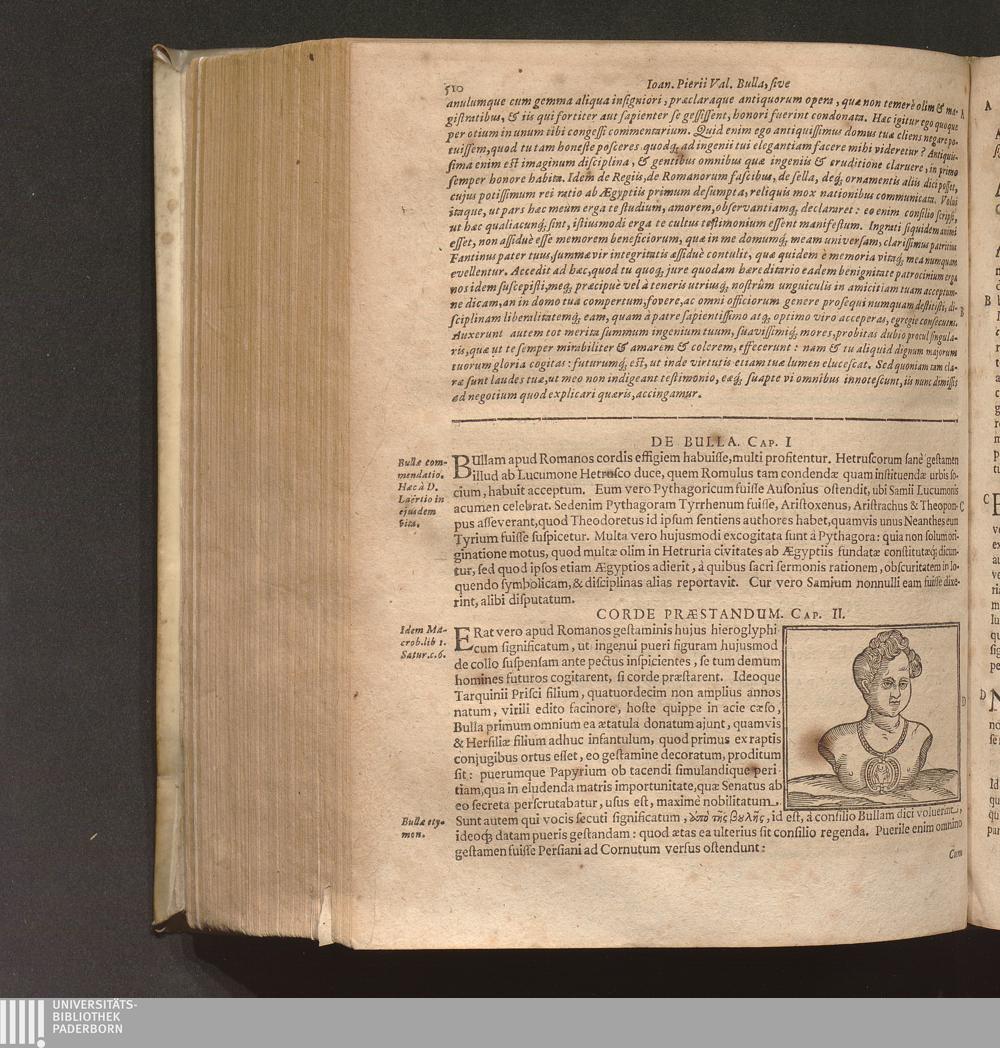 510
Ioan. Pierii Val. Bulla, sive
anulumque cum gemma aliqua insigniori, præclaraque antiquorum opera, quæ non temerè olim & ma-
gistratibus, & iis qui fortiter aut sapienter se gessissent, honori fuerint condonata. Hac igitur ego quoque
per otium in unum tibi congessi commentarium. Quid enim ego antiquissimus domus tuæ cliens negare po-
tuissem, quod tu tam honeste posceres quodq; ad ingenii tui elegantiam facere mihi videretur? Antiquis-
sima enim est imaginum disciplina, & gentibus omnibus quæ ingeniis & eruditione claruere, in primo
semper honore habita. Idem de Regiis, de Romanorum fascibus, de sella, deq; ornamentis aliis dici posset,
cujus potissimum rei ratio ab Ægyptiis primum desumpta, reliquis mox nationibus communicata. Volui
itaque, ut pars hæc meum erga te studium, amorem, observantiamq; declararet: eo enim consilio scripsi,
ut hæc qualiacunq; sint, istiusmodi erga te cultus testimonium essent manifestum. Ingrati siquidem animi
esset, non assiduè esse memorem beneficiorum, quæ in me domumq; meam universam, clarissimus patritius
Fantinus pater tuus, summæ vir integritatis assiduè contulit, quæ quidem è memoria vitaq; mea nunquam
evellentur. Accedit ad hæc, quod tu quoq; jure quodam hæreditario eadem benignitate patrocinium erga
nos idem suscepisti, meq; præcipuè vel à teneris utriusq; nostrûm unguiculis in amicitiam tuam acceptum-
ne dicam, an in domo tua compertum, fovere, ac omni officiorum genere prosequi nunquam destitisti, di-
sciplinam liberalitatemq; eam, quam à patre sapientissimo atq; optimo viro acceperas, egregie consecutus.
Auxerunt autem tot merita summum ingenium tuum, suavissimiq; mores, probitas dubio procul singula-
ris, quæ ut te semper mirabiliter & amarem & colerem, effecerunt: nam & tu aliquid dignum majorum
tuorum gloria cogitas: futurumq; est, ut inde virtutis etiam tuæ lumen elucescat. Sed quoniam tam cla-
ræ sunt laudes tuæ, ut meo non indigeant testimonio, eæq; suapte vi omnibus innotescunt, iis nunc dimissis
ad negotium quod explicari quæris, accingamur.
DE BULLA. CAP. I
Bullæ com-
mendatio.
Hæc à D.
Laërtio in
ejusdem
vita.
BUllam apud Romanos cordis effigiem habuisse, multi profitentur. Hetruscorum sanè gestamen
illud ab Lucumone Hetrusco duce, quem Romulus tam condendæ quam instituendæ urbis so-
cium, habuit acceptum. Eum vero Pythagoricum fuisse Ausonius ostendit, ubi Samii Lucumonis
acumen celebrat. Sed enim Pythagoram Tyrrhenum fuisse, Aristoxenus, Aristrachus & Theopom-
pus asseverant, quod Theodoretus id ipsum sentiens authores habet, quamvis unus Neanthes eum
Tyrium fuisse suspicetur. Multa vero hujusmodi excogitata sunt à Pythagora: quia non solum ori-
ginatione motus, quod multæ olim in Hetruria civitates ab Ægyptiis fundatæ constitutæq; dicun-
tur, sed quod ipsos etiam Ægyptios adierit, à quibus sacri sermonis rationem, obscuritatem in lo-
quendo symbolicam, & disciplinas alias reportavit. Cur vero Samium nonnulli eam fuisse dixe-
rint, alibi disputatum.
CORDE PRÆSTANDUM. CAP. II.
Idem Ma-
crob. lib 1.
Satur. c. 6.
ERat vero apud Romanos gestaminis hujus hieroglyphi
cum significatum, ut ingenui pueri figuram hujusmod
de collo suspensam ante pectus inspicientes, se tum demum
homines futuros cogitarent, si corde præstarent. Ideoque
Tarquinii Prisci filium, quatuordecim non amplius annos
natum, virili edito facinore, hoste quippe in acie cæso,
Bulla primum omnium ea ætatula donatum ajunt, quamvis
& Hersiliæ filium adhuc infantulum, quod primus ex raptis
conjugibus ortus esset, eo gestamine decoratum, proditum
sit: puerumque Papyrium ob tacendi simulandique peri
tiam, qua in eludenda matris importunitate, quæ Senatus ab
eo secreta perscrutabatur, usus est, maximè nobilitatum.
Bullæ ety-
mon.
Sunt autem qui vocis secuti significatum, ἀπὸ τῆς βουλῆς, id est, à consilio Bullam dici voluerint,
ideoq; datam pueris gestandam: quod ætas ea ulterius sit consilio regenda. Puerile enim omnino
gestamen fuisse Persiani ad Cornutum versus ostendunt:
Cum
A
B
C
D
UNIVERSITÄTS-
BIBLIOTHEK
PADERBORN